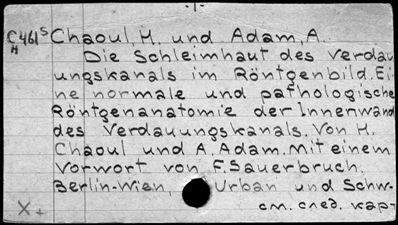 - 1 -
C461S Chaoul, H. und Adam, A.
H
Die Schleimhaut des Verdau
ungskanals im Röntgenbild. Ei
ne normale und pathologische
Röntgenanatomie der Innerwand
des Verdauungskanals. Von H.
Chaoul und A. Adam. Mit einem
Vorwort von F. Sauerbruch.
Berlin-Wien, Urban und Schw-
см. след. кар-
X +